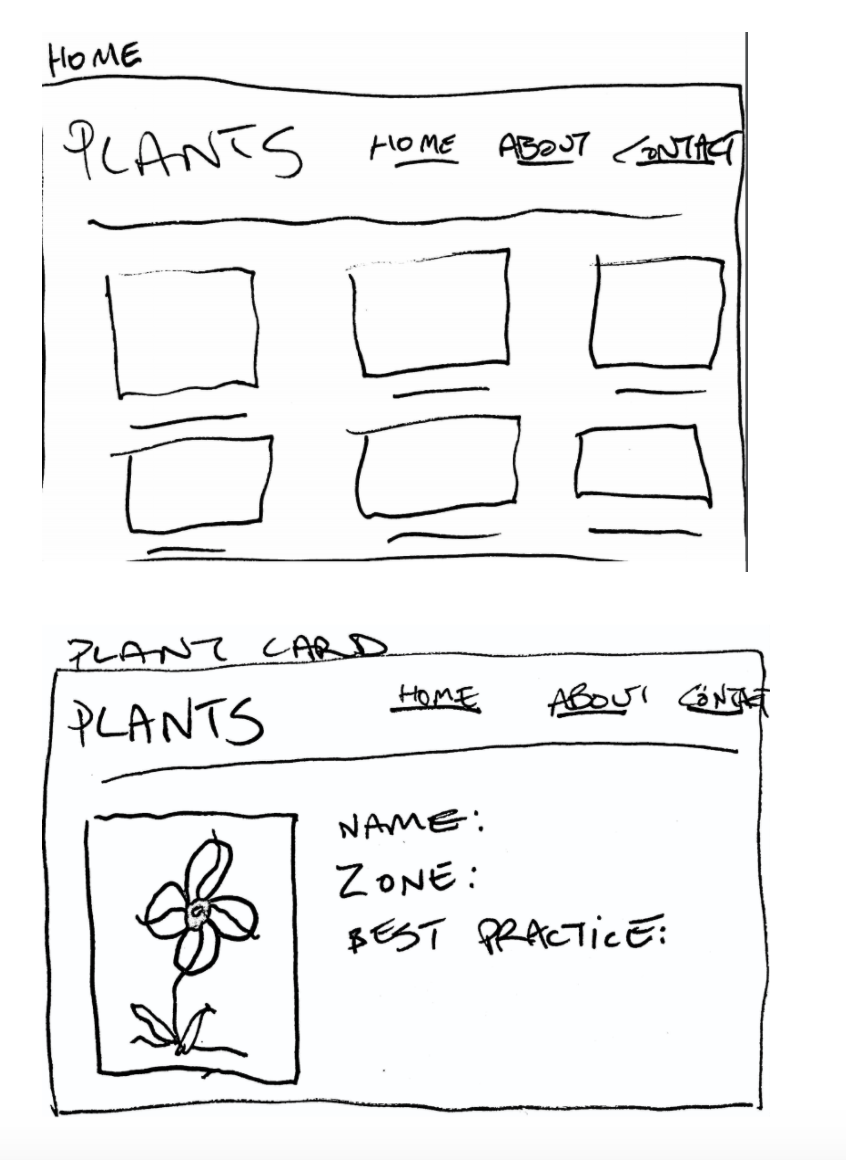 HOME
PLANTS HOME ABOUT CONTACT
PLANT CARD
PLANTS HOME ABOUT CONTACT
NAME:
ZONE:
BEST PRACTICE: